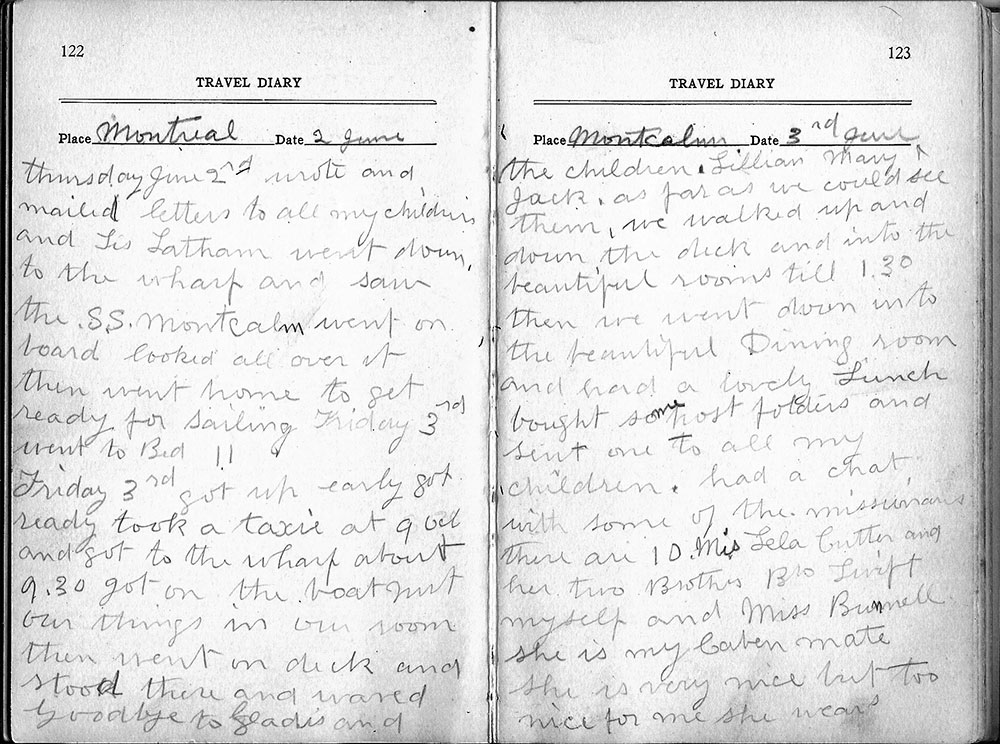 122
TRAVEL DIARY
Place Montreal Date 2 June
thursday June 2nd wrote and
mailed letters to all my childrin
and Sis Latham went down,
to the wharf and saw
the .S.S. Montcalm went on
board looked all over it
then went home to get
ready for sailing Friday 3rd
went to Bed 11
Friday 3rd got up early got
ready took a taxie at 9 ocl
and got to the wharf about
9.30 got on the boat put
our things in our room
then went on deck and
stood there and waved
Goodbye to Gladis and
123
TRAVEL DIARY
Place Montcalm Date 3rd June
the children. Lillian Mary &
Jack. as far as we could see
them, we walked up and
down the deck and into the
beautiful rooms till 1.30
then we went down into
the beautiful Dining room
and had a lovely Lunch
bought some post folders and
sent one to all my
children. had a chat
with some of the missionaris
there are 10. Mis Lela Cutter and
her two Brothes Bro Swift
myself and Miss Bunnell
she is my Caben mate
she is very nice but too
nice for me she wears